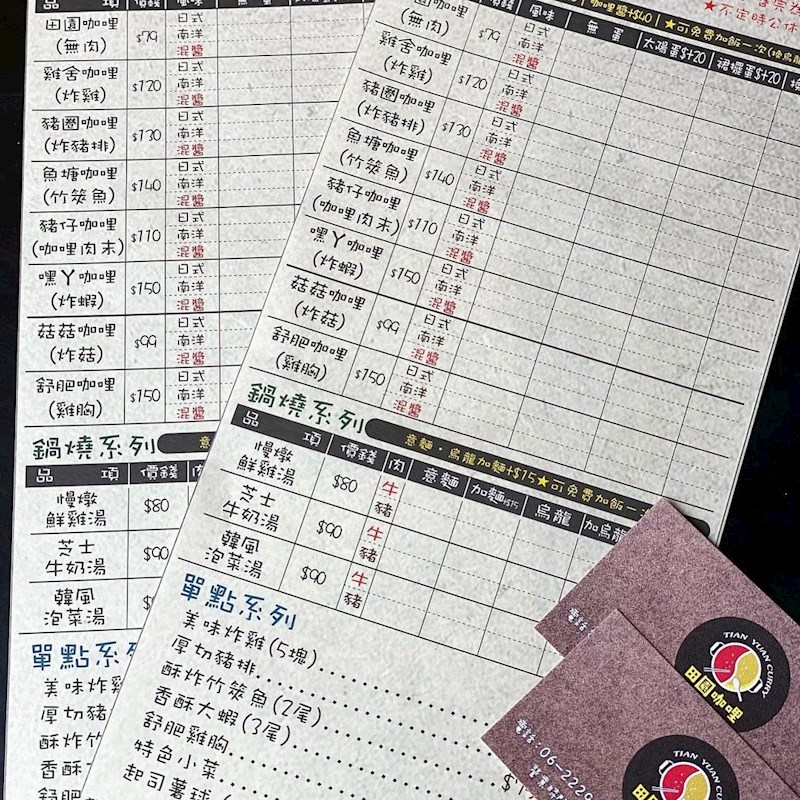 品 項 價錢 風味
田園咖哩
(無肉)
$79
日式
南洋
混醬
雞舍咖哩
(炸雞)
$120
日式
南洋
混醬
豬圈咖哩
(炸豬排)
$130
日式
南洋
混醬
魚塘咖哩
(竹筴魚)
$140
日式
南洋
混醬
豬仔咖哩
(咖哩肉末)
$110
日式
南洋
混醬
嘿丫咖哩
(炸蝦)
$150
日式
南洋
混醬
菇菇咖哩
(炸菇)
$99
日式
南洋
混醬
舒肥咖哩
(雞胸)
$150
日式
南洋
混醬
鍋燒系列
品 項 價錢 肉
慢燉
鮮雞湯
$80
芝士
牛奶湯
$90
韓風
泡菜湯
單點系列
美味炸雞
厚切豬
酥炸竹
香酥
特色
起司
咖哩醬+$40 ★可免費加飯一次
★不定時公休
風味 無 蛋 太陽蛋$+20 裙襬蛋$+20
田園咖哩
(無肉)
$79
日式
南洋
混醬
雞舍咖哩
(炸雞)
$120
日式
南洋
混醬
豬圈咖哩
(炸豬排)
$130
日式
南洋
混醬
魚塘咖哩
(竹筴魚)
$140
日式
南洋
混醬
豬仔咖哩
(咖哩肉末)
$110
日式
南洋
混醬
嘿丫咖哩
(炸蝦)
$150
日式
南洋
混醬
菇菇咖哩
(炸菇)
$99
日式
南洋
混醬
舒肥咖哩
(雞胸)
$150
日式
南洋
混醬
鍋燒系列
意麵・烏龍加麵+$15★可免費加飯一
品 項 價錢 肉 意麵 加麵+$15 烏龍 加烏龍
慢燉
鮮雞湯
$80
牛
豬
芝士
牛奶湯
$90
牛
豬
韓風
泡菜湯
$90
牛
豬
單點系列
美味炸雞(5塊)
厚切豬排
酥炸竹筴魚(2尾)
香酥大蝦(3尾)
舒肥雞胸
特色小菜
起司薯球
TIAN YUAN CURRY
田園咖哩
電話
TIAN YUAN CURRY
田園咖哩
電話:06-2229